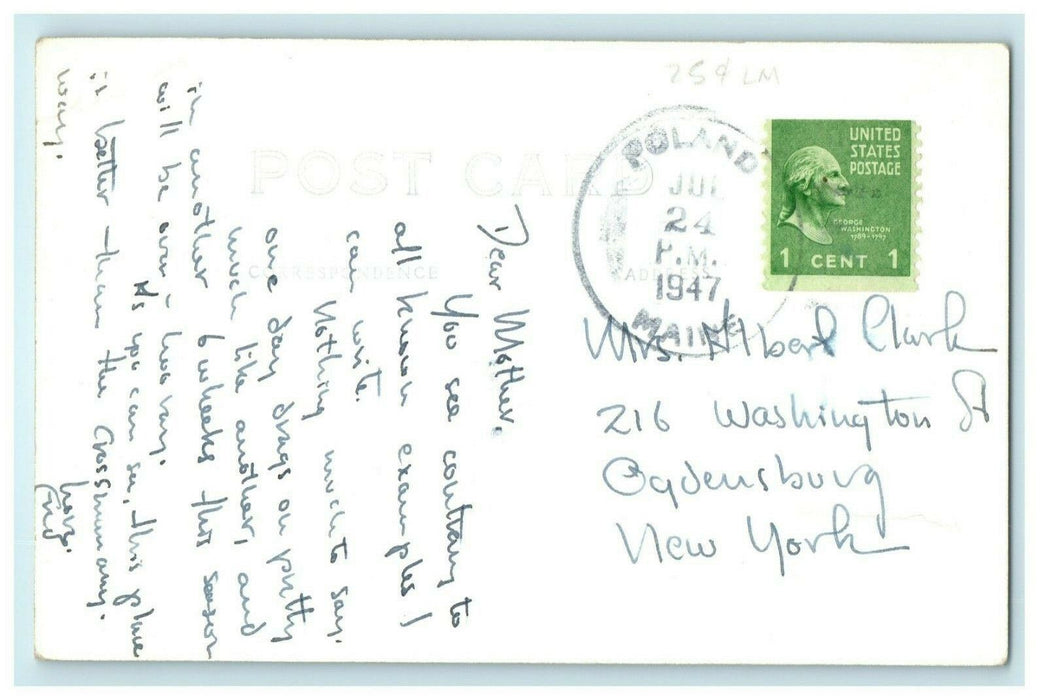 25¢ LM
POST CARD
CORRESPONDENCE
ADDRESS
POLAND
JUL
24
P.M.
1947
MAINE
UNITED
STATES
POSTAGE
GEORGE
WASHINGTON
1789-1797
1 CENT 1
Mrs. Albert Clark
216 Washington St
Ogdensburg
New York
Dear Mother,
You see contrary to
all known examples I
can write.
Nothing much to say.
one day drags on pretty
much like another, and
in another 6 weeks this season
will be over - hooray.
As you can see, this place
is better than the Crossman any.
way.
Love,